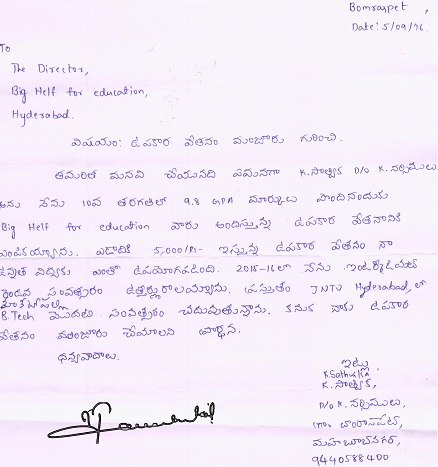 Bomraspet,
Date: 5/09/16.
To
The Director,
Big Help for education,
Hyderabad.
విషయం: ఉపకార వేతనం మంజూరు గురించి.
తమరితో మనవి చేయునది ఏమనగా K.సాత్విక D/o K.నర్సిములు
అను నేను 10వ తరగతిలో 9.8 GPA మార్కులు పొందినందుకు
Big Help for education వారు అందిస్తున్న ఉపకార వేతనానికి
ఎంపికయ్యాను. ఏడాదికి 5,000/Rs- ఇస్తున్న ఉపకార వేతనం నా
ఉన్నత విద్యకు ఎంతో ఉపయోగపడింది. 2015-16లో నేను ఇంటర్మీడియట్
రెండవ సంవత్సరం ఉత్తీర్ణురాలయ్యాను. ప్రస్తుతం JNTU Hyderabad,లో
B.Tech మొదటి సంవత్సరం చదువుతున్నాను. కనుక నాకు ఉపకార
వేతనం మంజూరు చేయాలని ప్రార్థన.
ధన్యవాదాలు.
ఇట్లు
K.Sathvika
K.సాత్విక,
D/o K.నర్సిములు,
గ్రా: బొంరాస్‌పేట్,
మహబూబ్‌నగర్,
9440588400